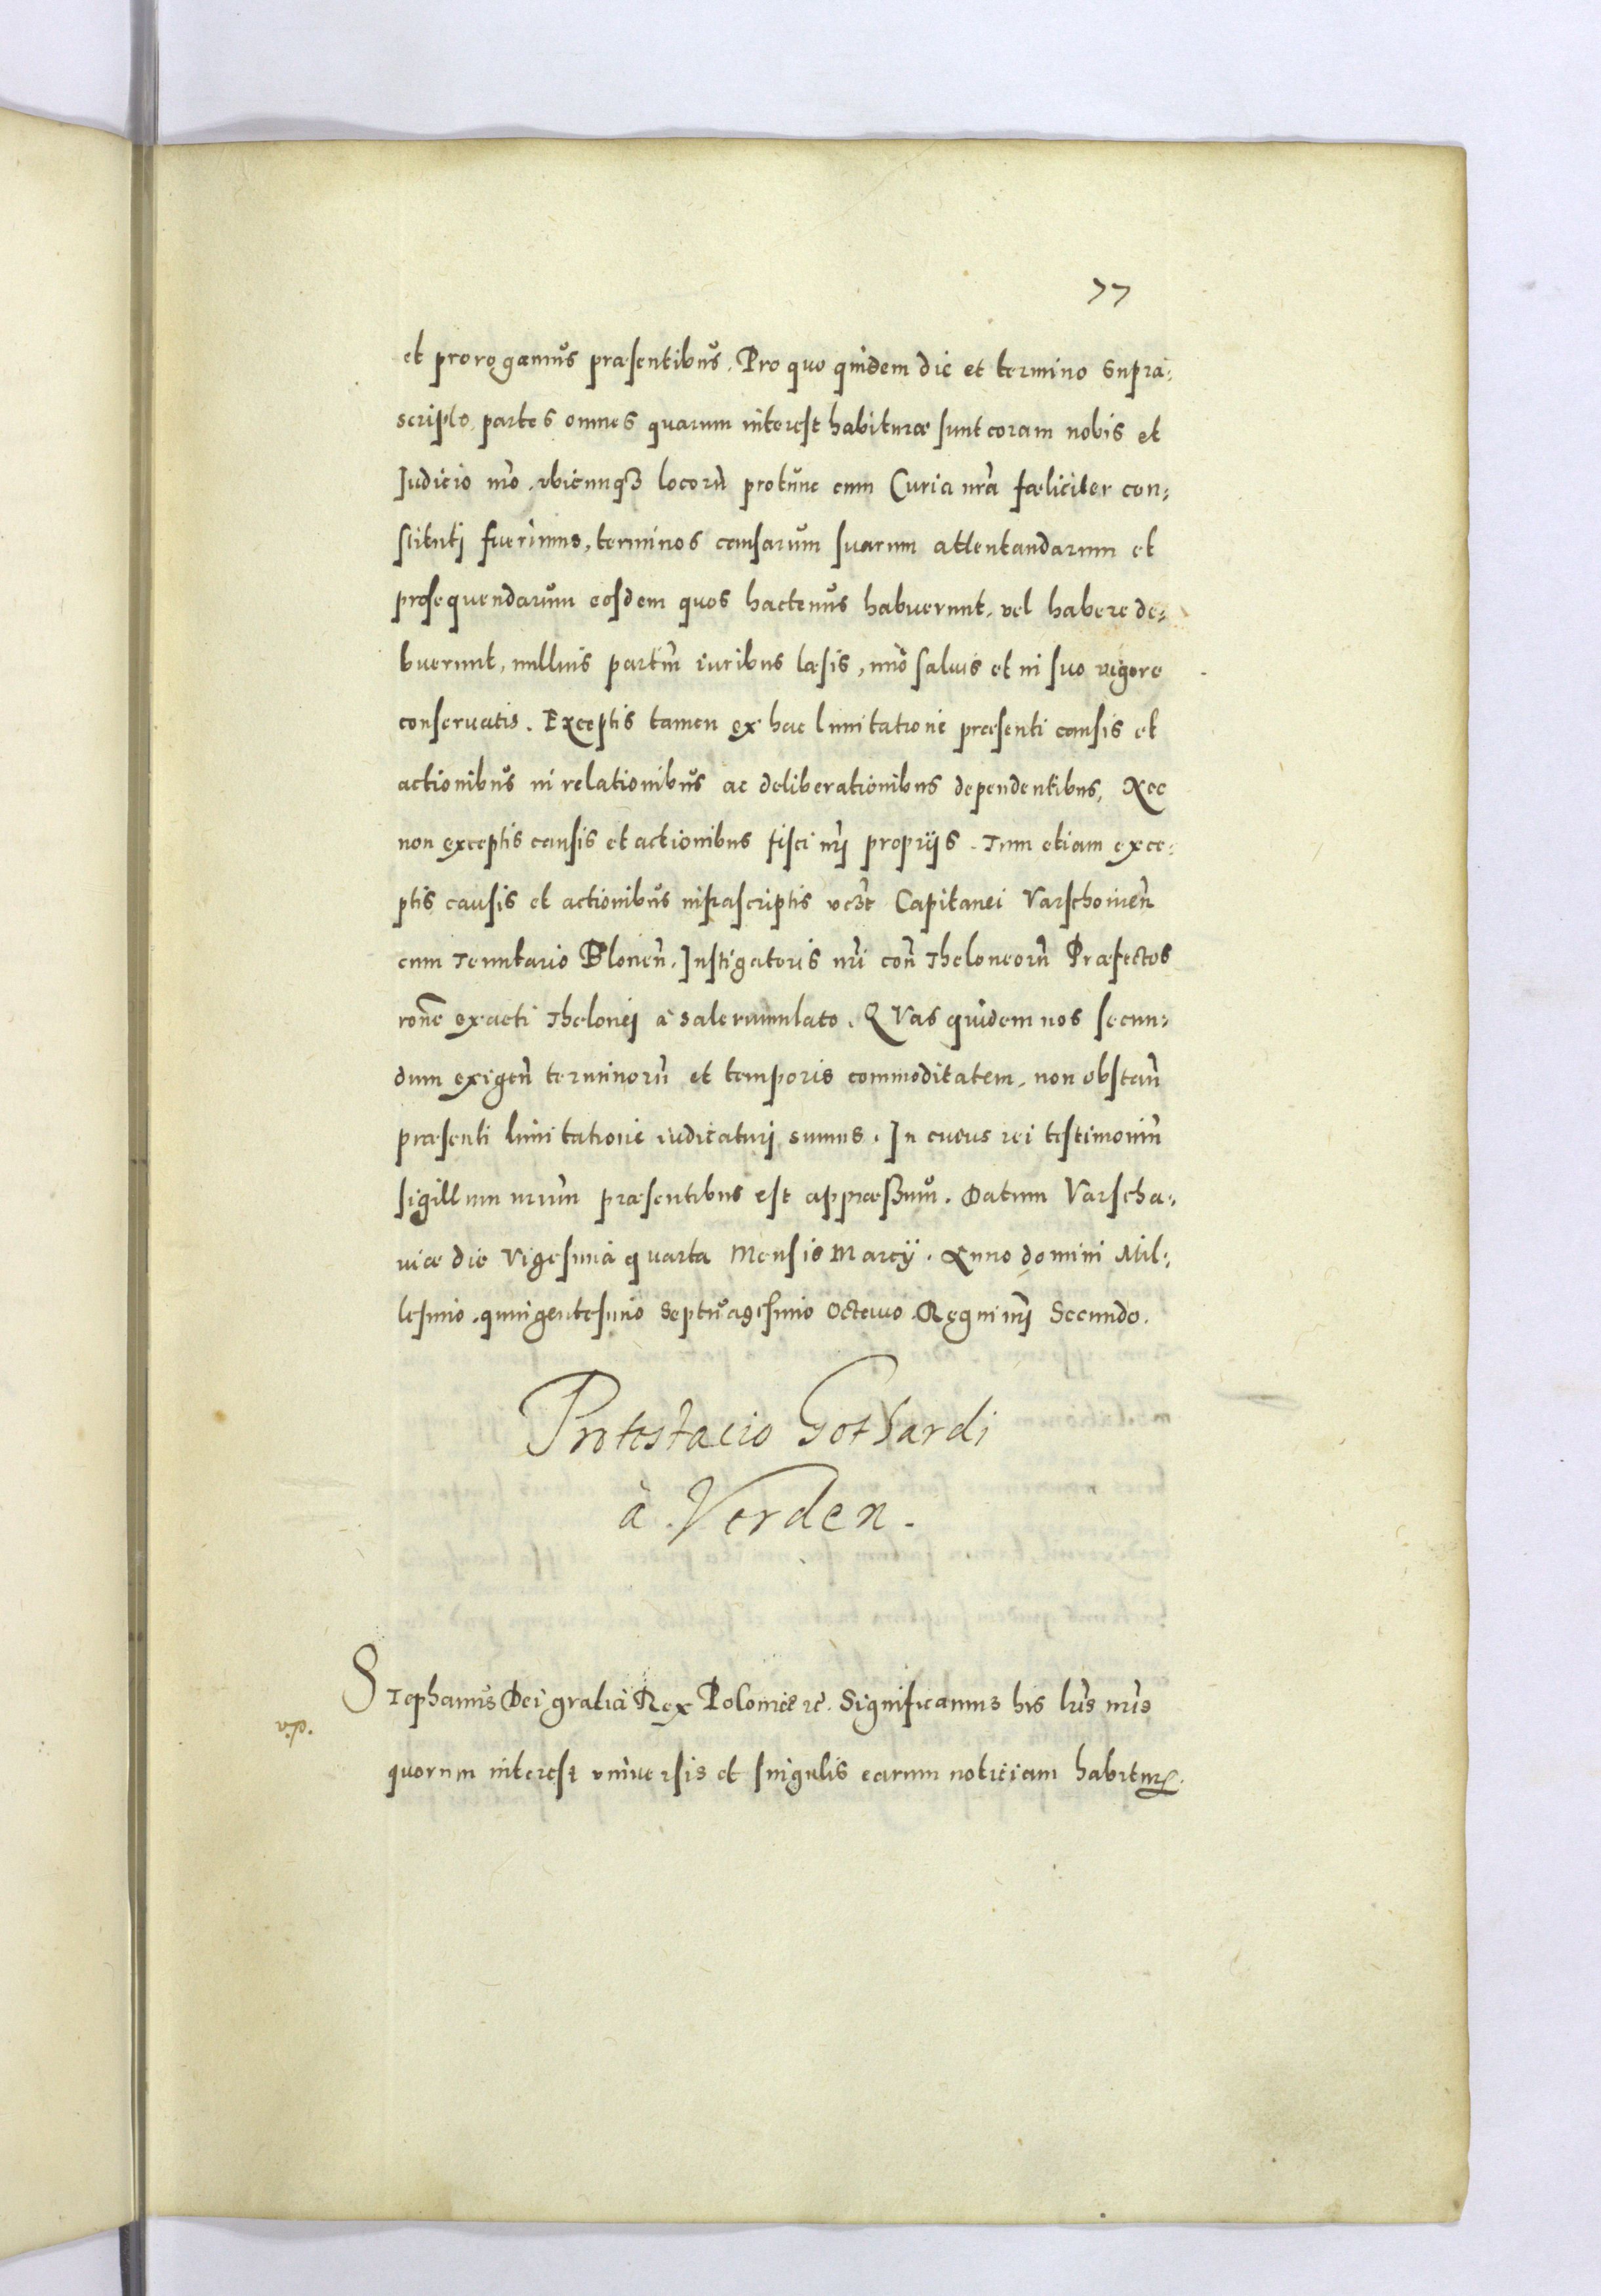 77
et prorogamus præsentibus. Pro quo quidem die et termino supra⸗
scripto, partes omnes quarum interest habituræ sunt coram nobis et
Iudicio nr̃o. vbicunqꝫ locorũ protunc cum Curia nrã fæliciter con⸗
stituti fuerimus, terminos causarum suarum attentandarum et
prosequendarum eosdem quos hactenus habuerunt, vel habere de⸗
buerunt, nullius partiũ iuribus læsis, imo saluis et in suo vigore
conseruatis. Exceptis tamen ex hac limitatione præsenti causis et
actionibus in relationibus ac deliberationibus dependentibus, Nec
non exceptis causis et actionibus fisci nr̃j proprijs. Tum etiam exce⸗
ptis causis et actionibus infrascriptis vcꝫt Capitanei Varschouień
cum Tenutario Bloneñ. Instigatoris nr̃i coñ Theloneorũ Præfectos
rone exacti Thelonej à sale rumulato. QVas quidem nos secun⸗
dum exigeñ terminorũ et temporis commoditatem, non obstañ
præsenti limitatione iudicaturj sumus. In cuius rei testimoniũ
sigillum nrum præsentibus est appræßum. Datum Varscha⸗
uiæ die Vigesima quarta Mensis Marcÿ. Anno domini Mil⸗
lesimo. quingentesimo Septuagesimo Octauo. Regni nr̃j Secundo.
Protestacio Gothardi
à Verden.
Stephanus Dei gratia Rex Poloniæ ꝛc̃. Significamus his lr̃is nr̃is
quorum interest vniuersis et singulis earum noticiam habiturꝭ.